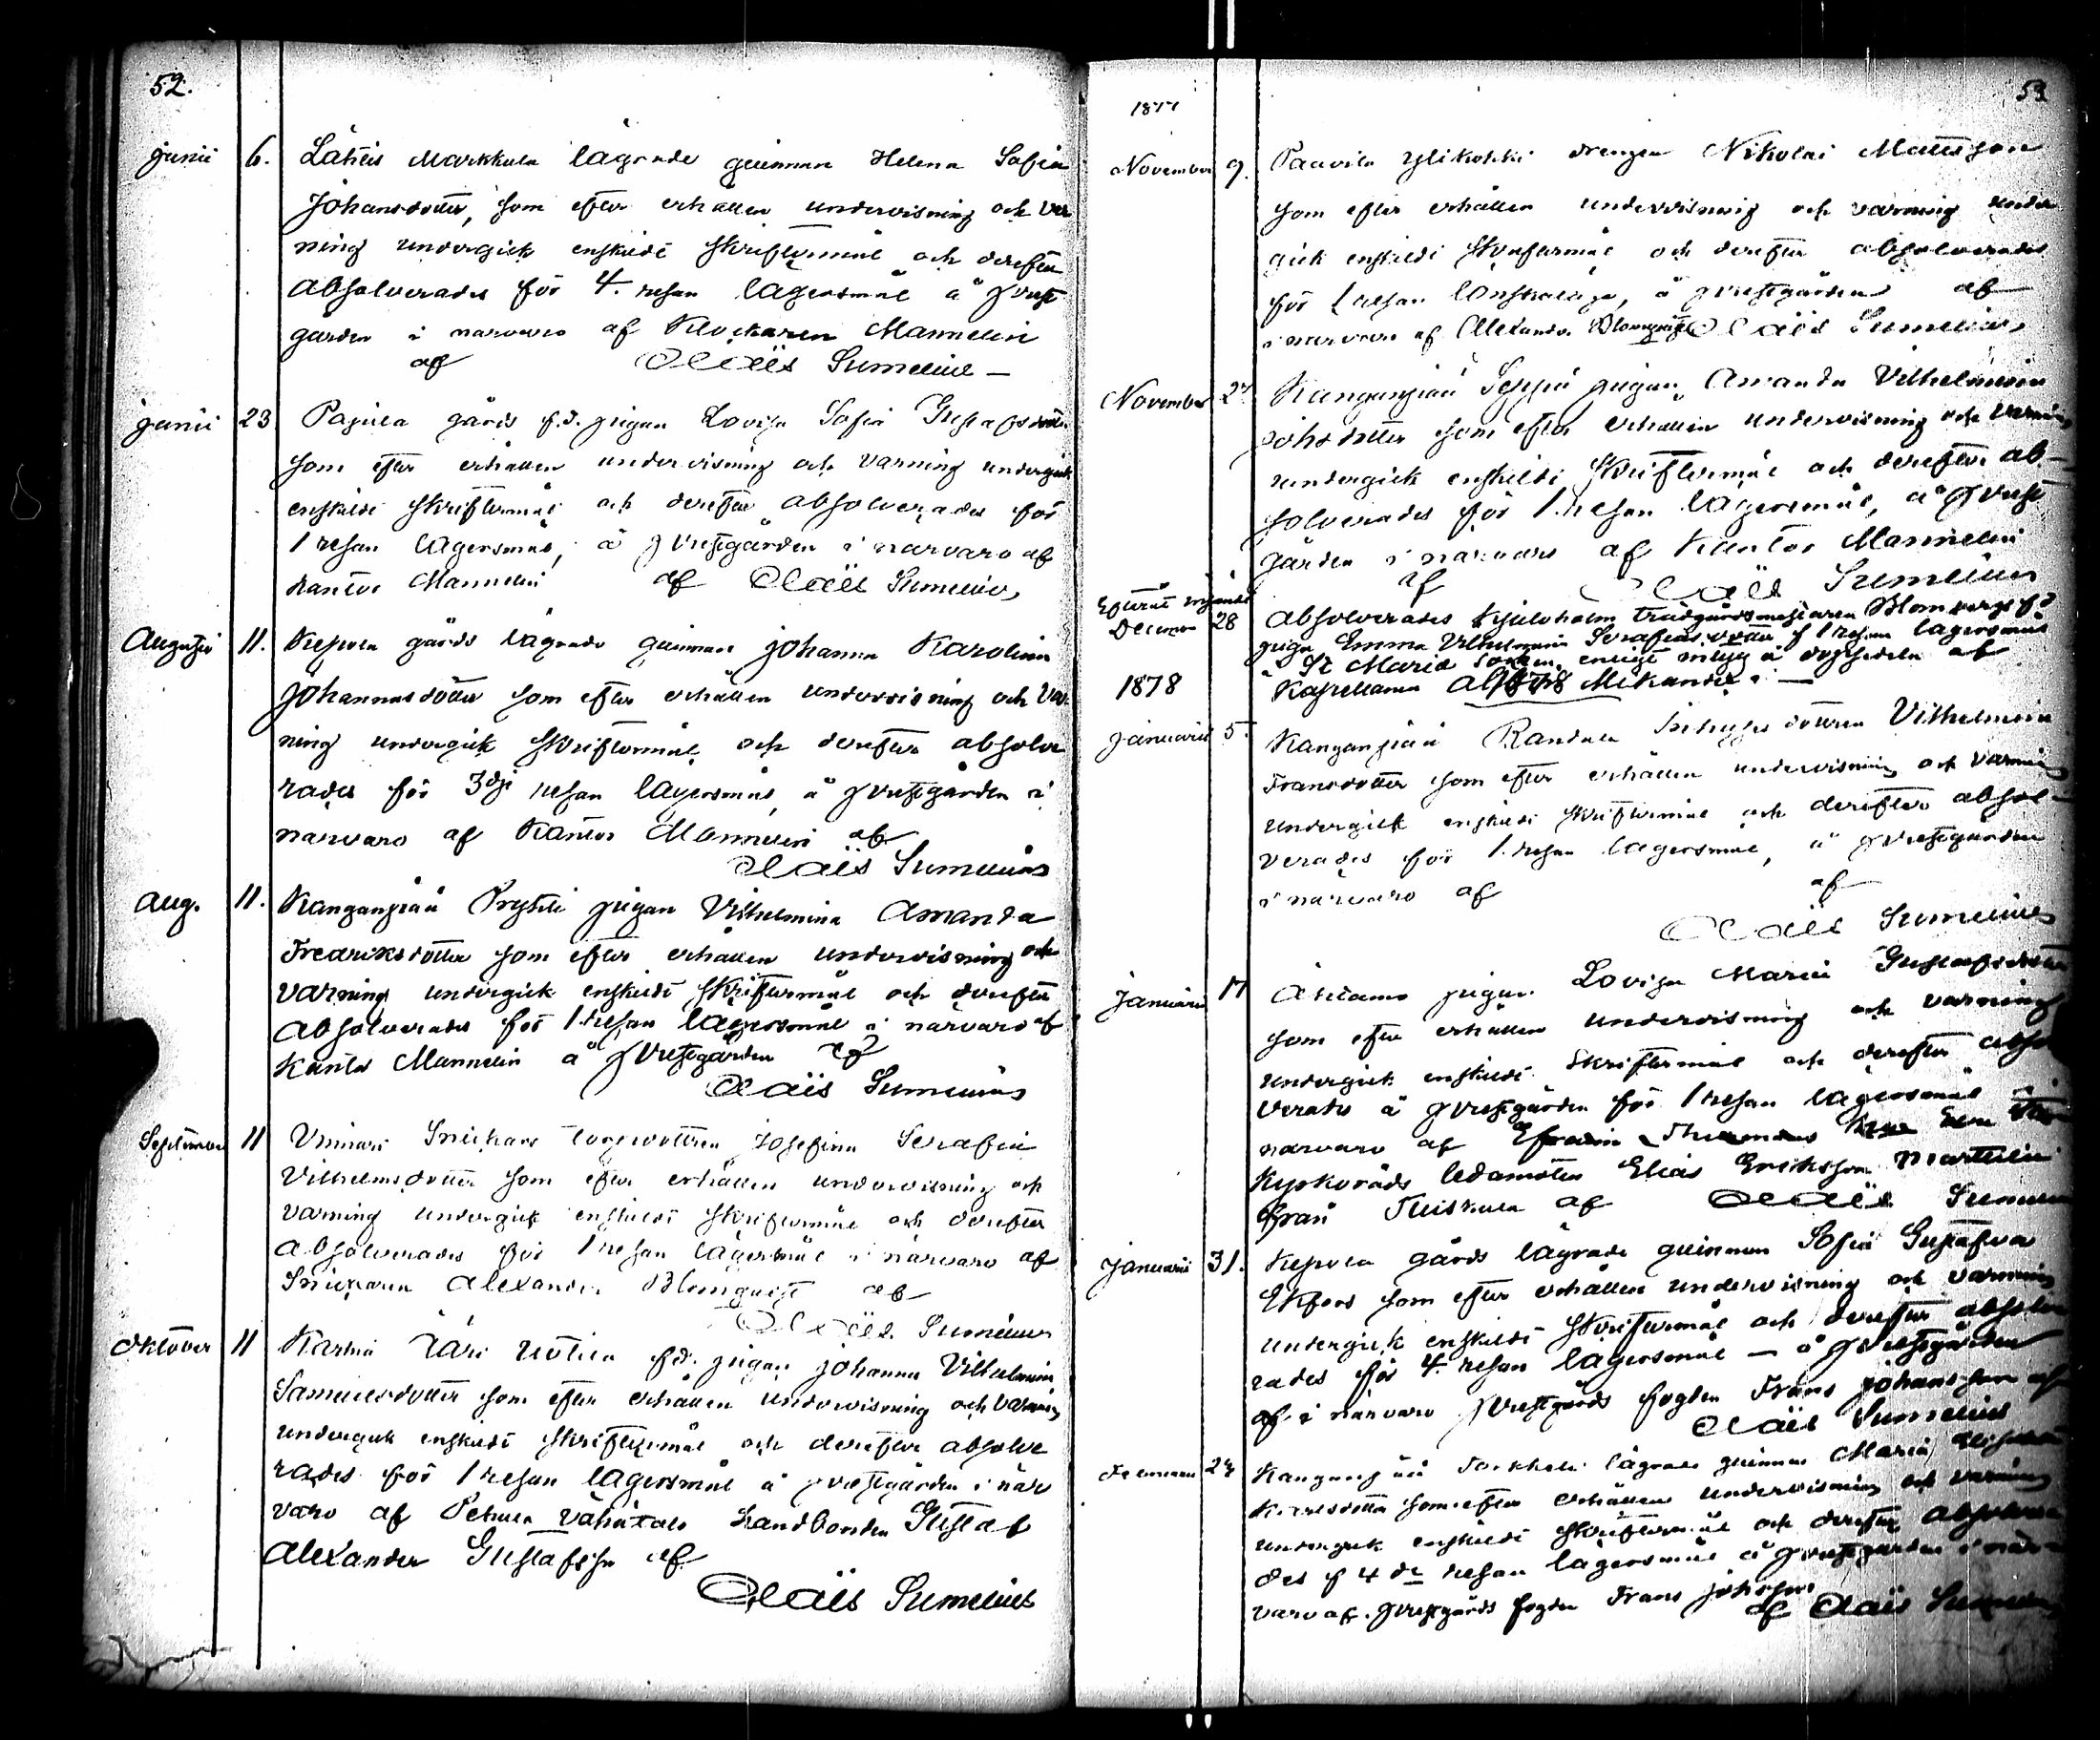 52.
Junii 6. Lähteis Markkula lägrade qvinnan Helena Sofia
Johansdotter, som efter erhållen undervisning och var
ning undergick enskildt skriftermål och derefter
absolverades för 4. resan lägersmål å prest
gården i närvaro af Klockaren Mannelin
af Claës Sumelius
Junii 23 Pajula gårds f.d. pigan Lovisa Sofia Gustafsdotter
som efter erhållen undervisning och varning undergick
enskildt skriftermål och derefter absolverades för
1 resan lägersmål, å prestgården i närvaro af
Kantor Mannelin af Claës Sumelius
Augusti 11. Kepola gårds lägrade qvinnan Johanna Karolina
Johannesdotter som efter erhållen undervisning och var
ning undergick skriftermål och derefter absolve
rades för 3dje resan lägersmål, å prestgården i
närvaro af Kantor Mannelin af
Claës Sumelius
Aug. 11. Kanganpää Prysti pigan Vilhelmina Amanda
Fredriksdotter som efter erhållen undervisning och
varning undergick enskildt skriftermål och derefter
absolverades för 1 resan lägersmål i närvaro af
Kantor Mannelin å prestgården af
Claës Sumelius
September 11 Vinnari Snickars dottren Josefina Serafia
Vilhelmsdotter som efter erhållen undervisning och
varning undergick enskildt skriftermål och derefter
absolverades för 1 resan lägersmål i närvaro af
Snickaren Alexander Blomqvist af
Claës Sumelius
Oktober 11 Karhia f.d. pigan Johanna Vilhelmina
Samuelsdotter som efter erhållen undervisning och varning
undergick enskildt skriftermål och derefter absolve
rades för 1 resan lägersmål å prestgården i när
varo af Pehula Vähätalo Landbonden Gustaf
Alexander Gustafsson af
Claës Sumelius
53
1877
November 9. Paavila Ylikoski drengen Nikolai Mattsson
som efter erhållen undervisning och varning under
gick enskildt skriftermål och derefter absolverades
för 1 resan lönskaläge, å prestgården af
i närvaro af Alexander Blomqvist Claës Sumelius
November 27 Kanganpää Seppä pigan Amanda Vilhelmina
Johsdotter som efter erhållen undervisning och varning
undergick enskildt skriftermål och derefter ab-
solverades för 1. resan lägersmål, å prest
gården i närvaro af Kantor Mannelin
af Claës Sumelius
December 28 absolverades Kjuloholm trädgårdsmästaren Blombergs f.d.
piga Emma Vilhelmina Serafiasdotter f 1 resan lägersmål
i St Marie socken, enligt intyg å af
Kapellanen Mikander
1878
Januarii 5. Kanganpää Randala dottren Vilhelmina
Fransdotter som efter erhållen undervisning och varning
undergick enskildt skriftermål och derefter absol-
verades för 1. resan lägersmål, å prestgården
i närvaro af af
Claës Sumelius
Januarii 17 pigan Lovisa Maria Gustafsdotter
som efter erhållen undervisning och varning
undergick enskildt skriftermål och derefter absol
verades å prestgården för 1 resan lägersmål i
närvaro af
Kyrkoråds ledamoten Elias Eriksson Marttila
från Tuiskula af Claës Sumelius
Januarii 31. Kepola gårds lägrade qvinnan Sofia Gustafva
Ekfors som efter erhållen undervisning och varning
undergick enskildt skriftermål och derefter absolve
rades för 4. resan lägersmål — å prestgården
af i närvaro prestgårds fogden Frans Johansson af
Claës Sumelius
Februari Kanganpää lägrade qvinnan Maria
Karlsdotter som efter erhållen undervisning och varning
undergick enskildt skriftermål och derefter absolvera
des f 4de resan lägersmål å prestgården i när
varo af prestgårds fogden Frans Johsson
af Claës Sumelius